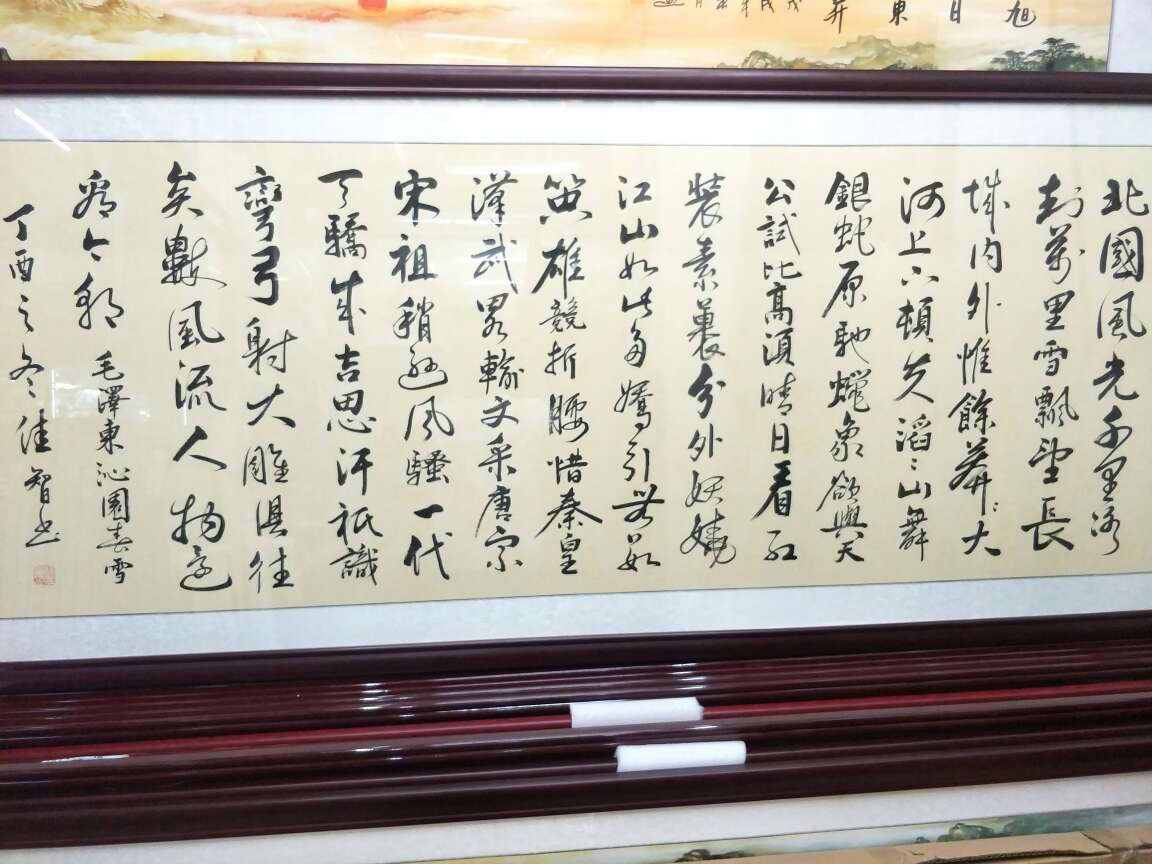 旭日東
北國風光千里冰
封萬里雪飄望長
城内外惟餘莽〻大
河上下頓失滔〻山舞
銀蛇原馳蠟象欲與天
公試比高須晴日看紅
裝素裹分外妖嬈
江山如此多嬌引無數
英雄競折腰惜秦皇
漢武畧輸文采唐宗
宋祖稍遜風騷一代
天驕成吉思汗祇識
彎弓射大雕俱往
矣數風流人物還
看今朝 毛澤東沁園春雪
丁酉之冬佳智書